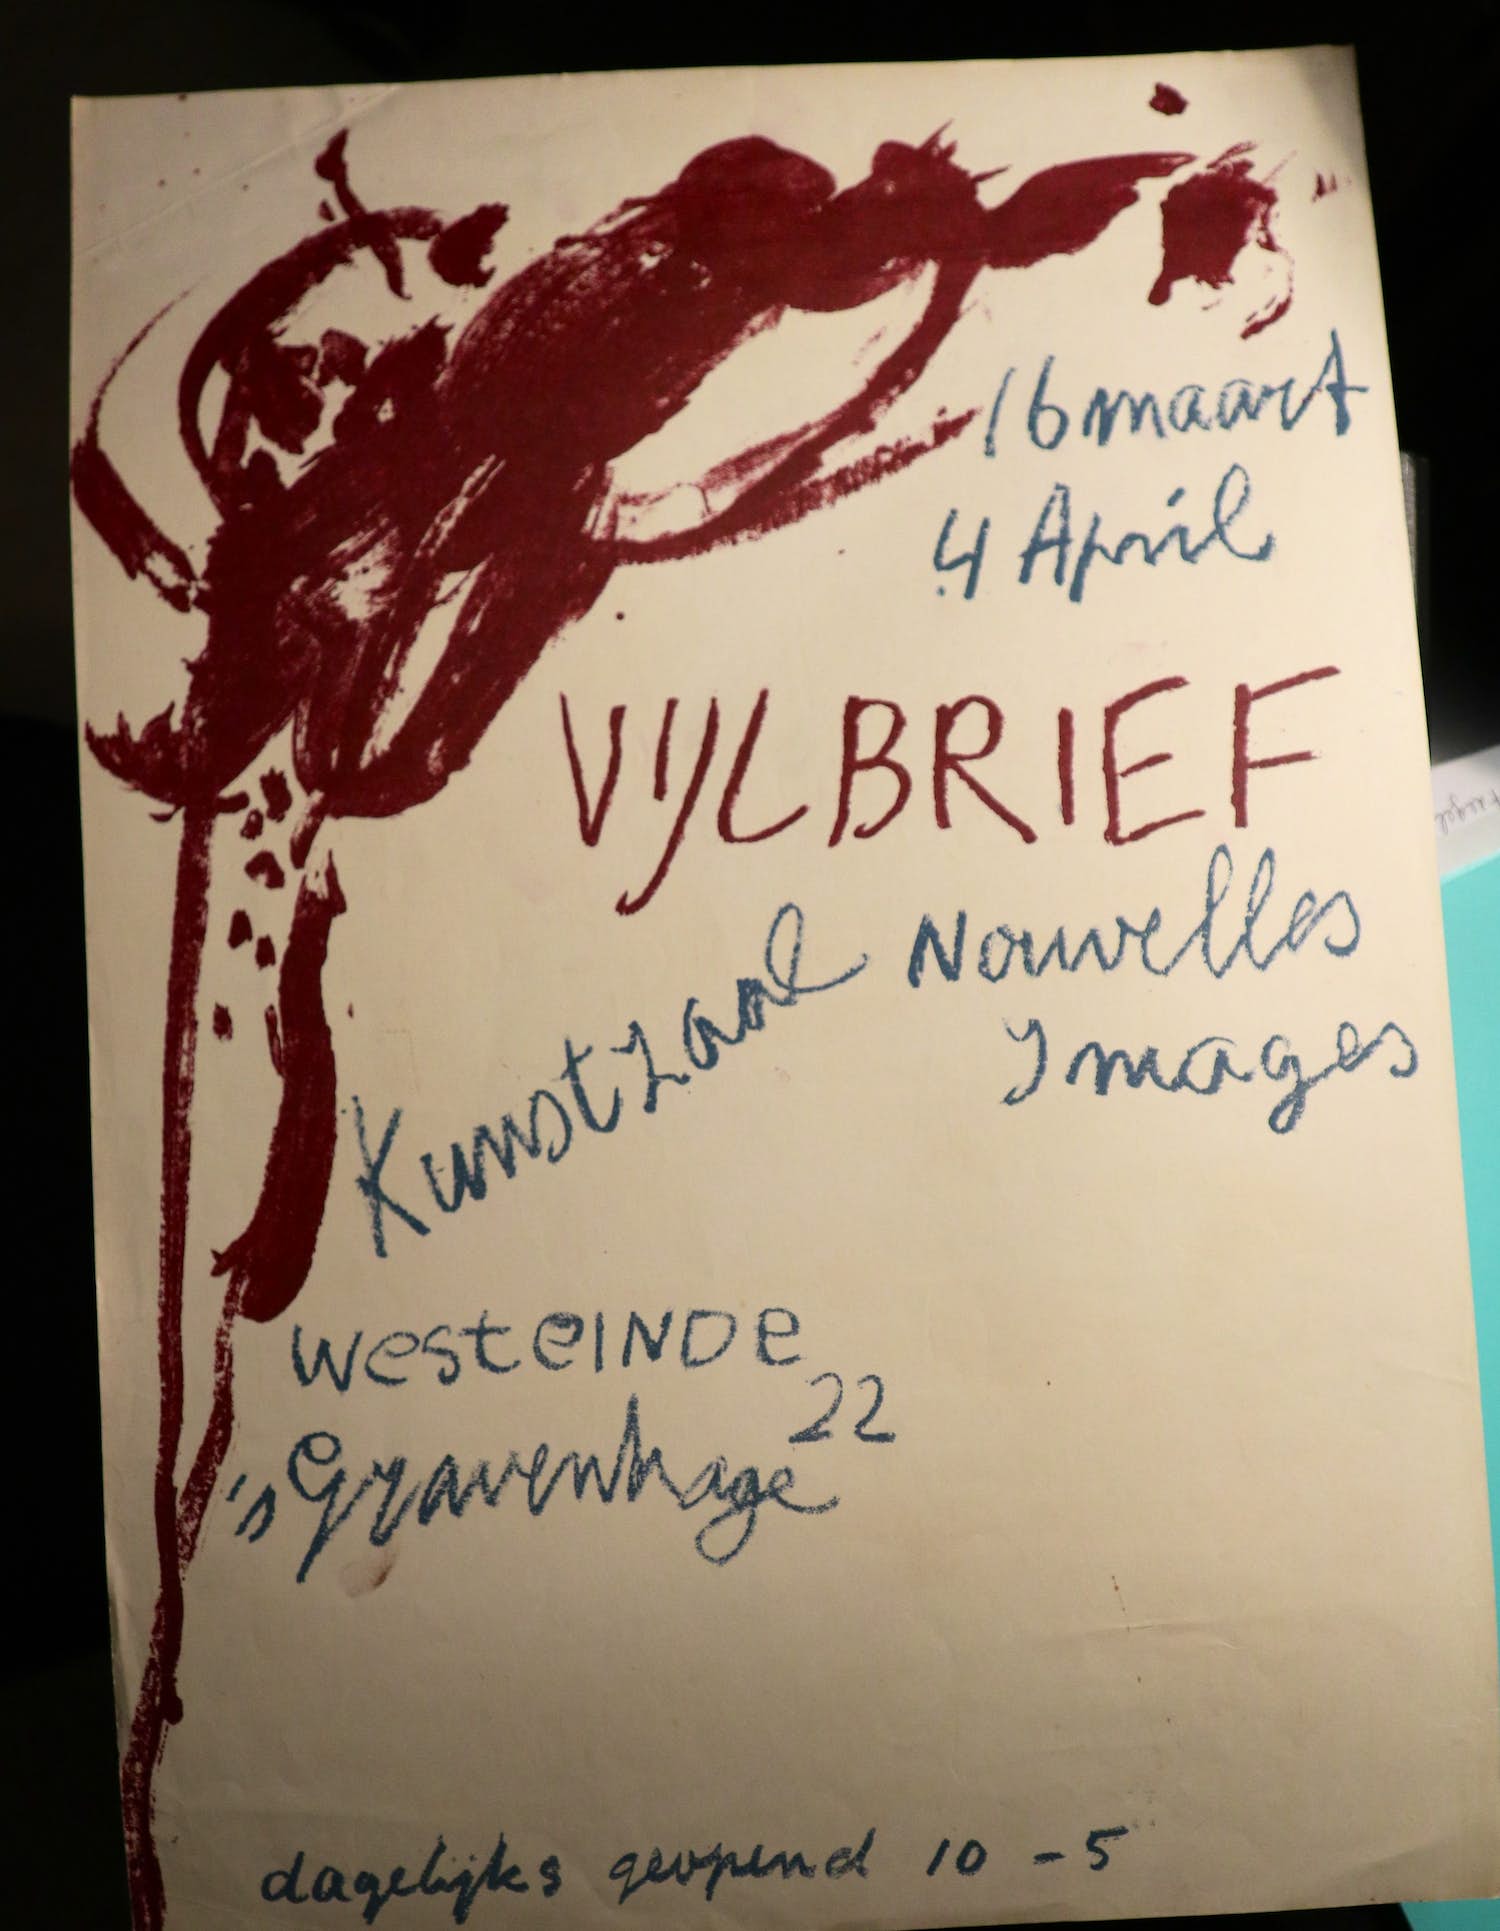 16 maart
4 April
VIJLBRIEF
Kunstzaal Nouvelles
Images
WesteINDe
22
's Gravenhage
dagelijks geopend 10 - 5